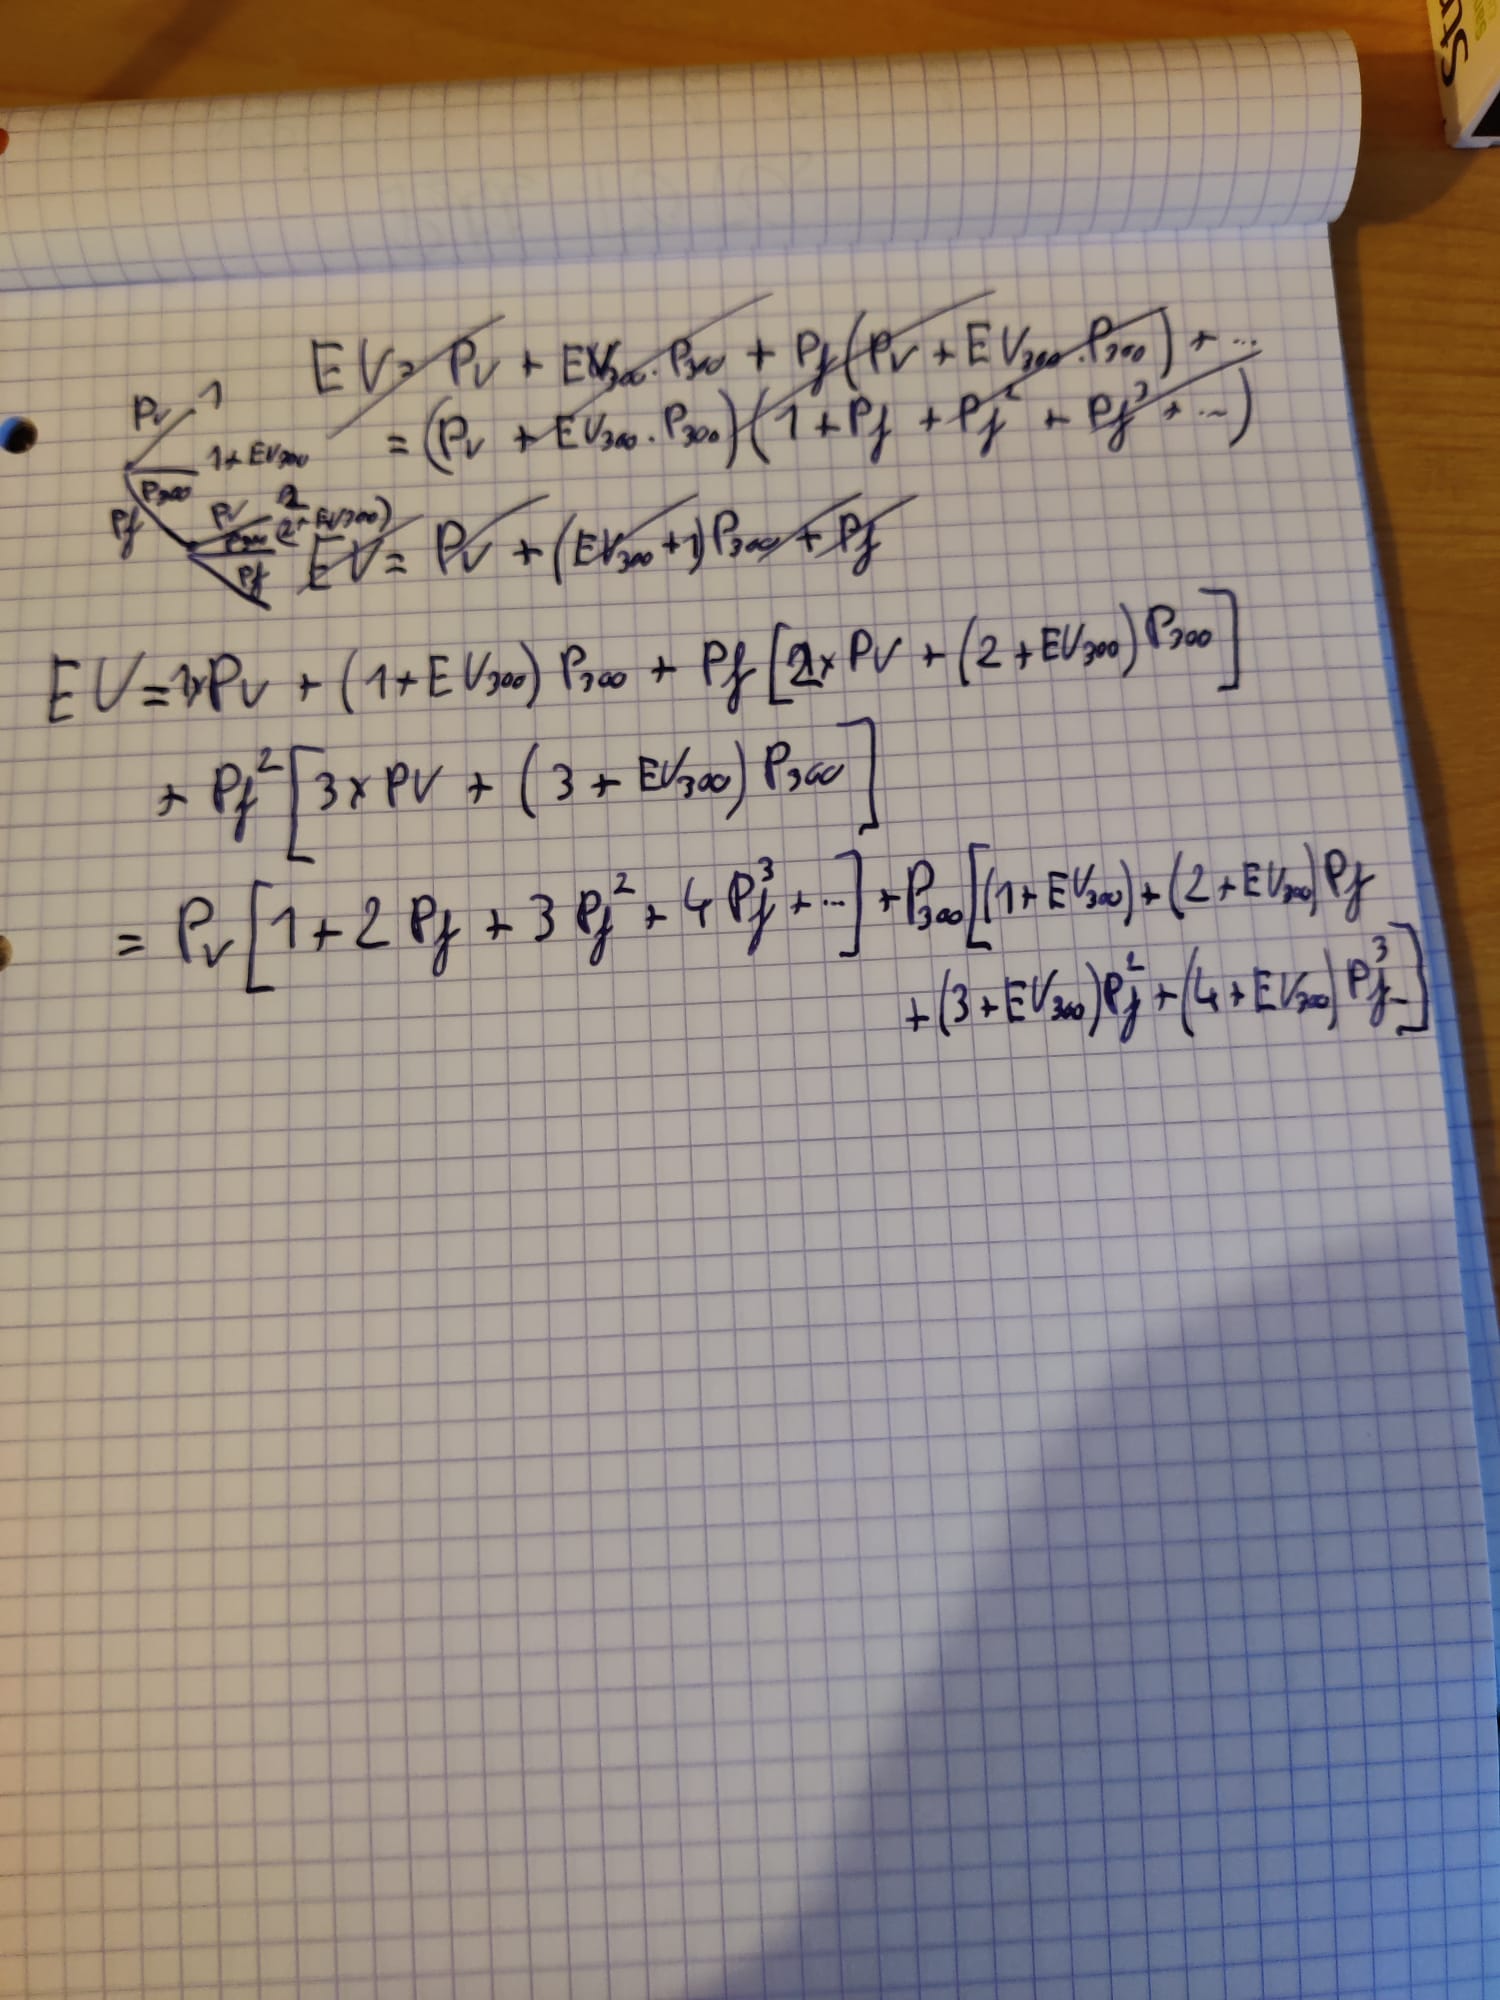 EV = Pv + EV₃₀₀ · P₃₀₀ + Pf (Pv + EV₃₀₀ · P₃₀₀) + ...
= (Pv + EV₃₀₀ · P₃₀₀) (1 + Pf + Pf² + Pf³ + ...)
Pv 1
1 + EV₃₀₀
P₃₀₀
Pf
Pv 2
P₃₀₀ (2 + EV₃₀₀)
Pf
EV = Pv + (EV₃₀₀ + 1) P₃₀₀ + Pf
EV = 1 × Pv + (1 + EV₃₀₀) P₃₀₀ + Pf [2 × PV + (2 + EV₃₀₀) P₃₀₀]
+ Pf² [3 × PV + (3 + EV₃₀₀) P₃₀₀]
= Pv [1 + 2 Pf + 3 Pf² + 4 Pf³ + ...] + P₃₀₀ [(1 + EV₃₀₀) + (2 + EV₃₀₀) Pf
+ (3 + EV₃₀₀) Pf² + (4 + EV₃₀₀) Pf³ ...]